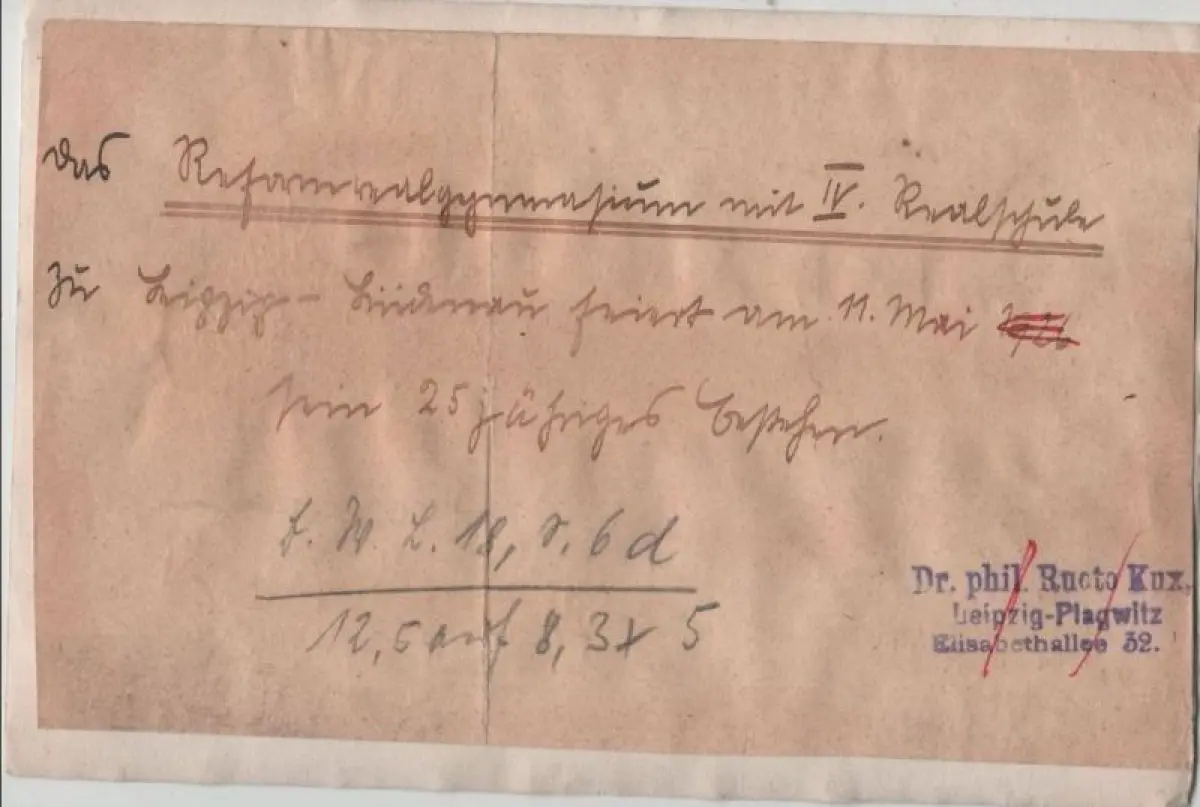 das Reformrealgymnasium mit IV. Realschule
zu Leipzig-Lindenau feiert am 11. Mai
sein 25jähriges Bestehen.
L. 18, S. 6 d
12,5 auf 8,3 x 5
Dr. phil. Kux,
Leipzig-Plagwitz
Elisabethallee 32.